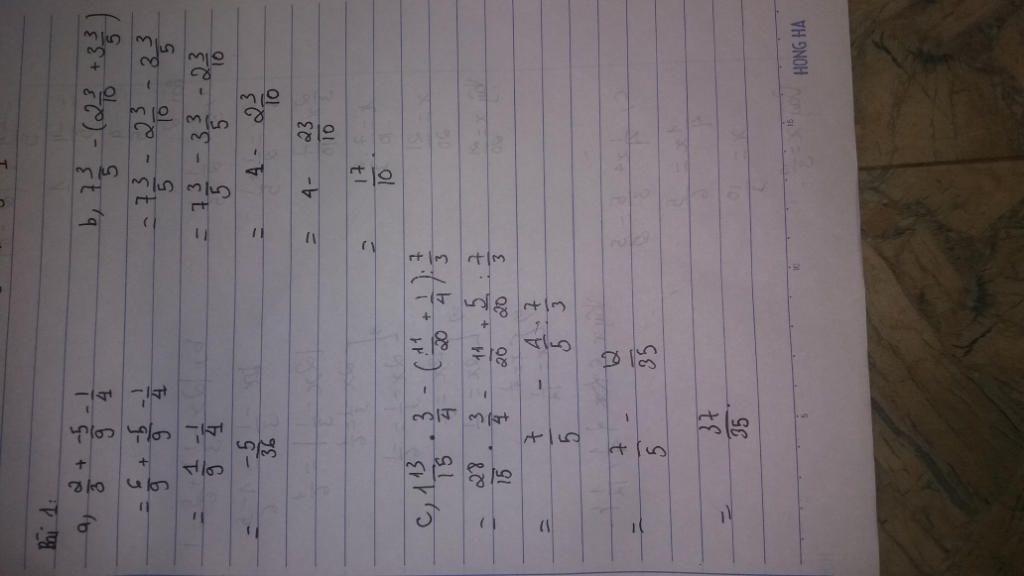 Bài 1:
a, 2/3 + -5/9 - 1/4
= 6/9 + -5/9 - 1/4
= 1/9 - 1/4
= -5/36
b, 7 3/5 - (2 3/10 + 3 3/5)
= 7 3/5 - 2 3/10 - 3 3/5
= 7 3/5 - 3 3/5 - 2 3/10
= 4 - 2 3/10
= 4 - 23/10
= 17/10.
c, 1 13/15 . 3/4 - (11/20 + 1/4) : 7/3
= 28/15 . 3/4 - 11/20 + 5/20 : 7/3
= 7/5 - 4/5 : 7/3
= 7/5 - 12/35
= 37/35.
HONG HA